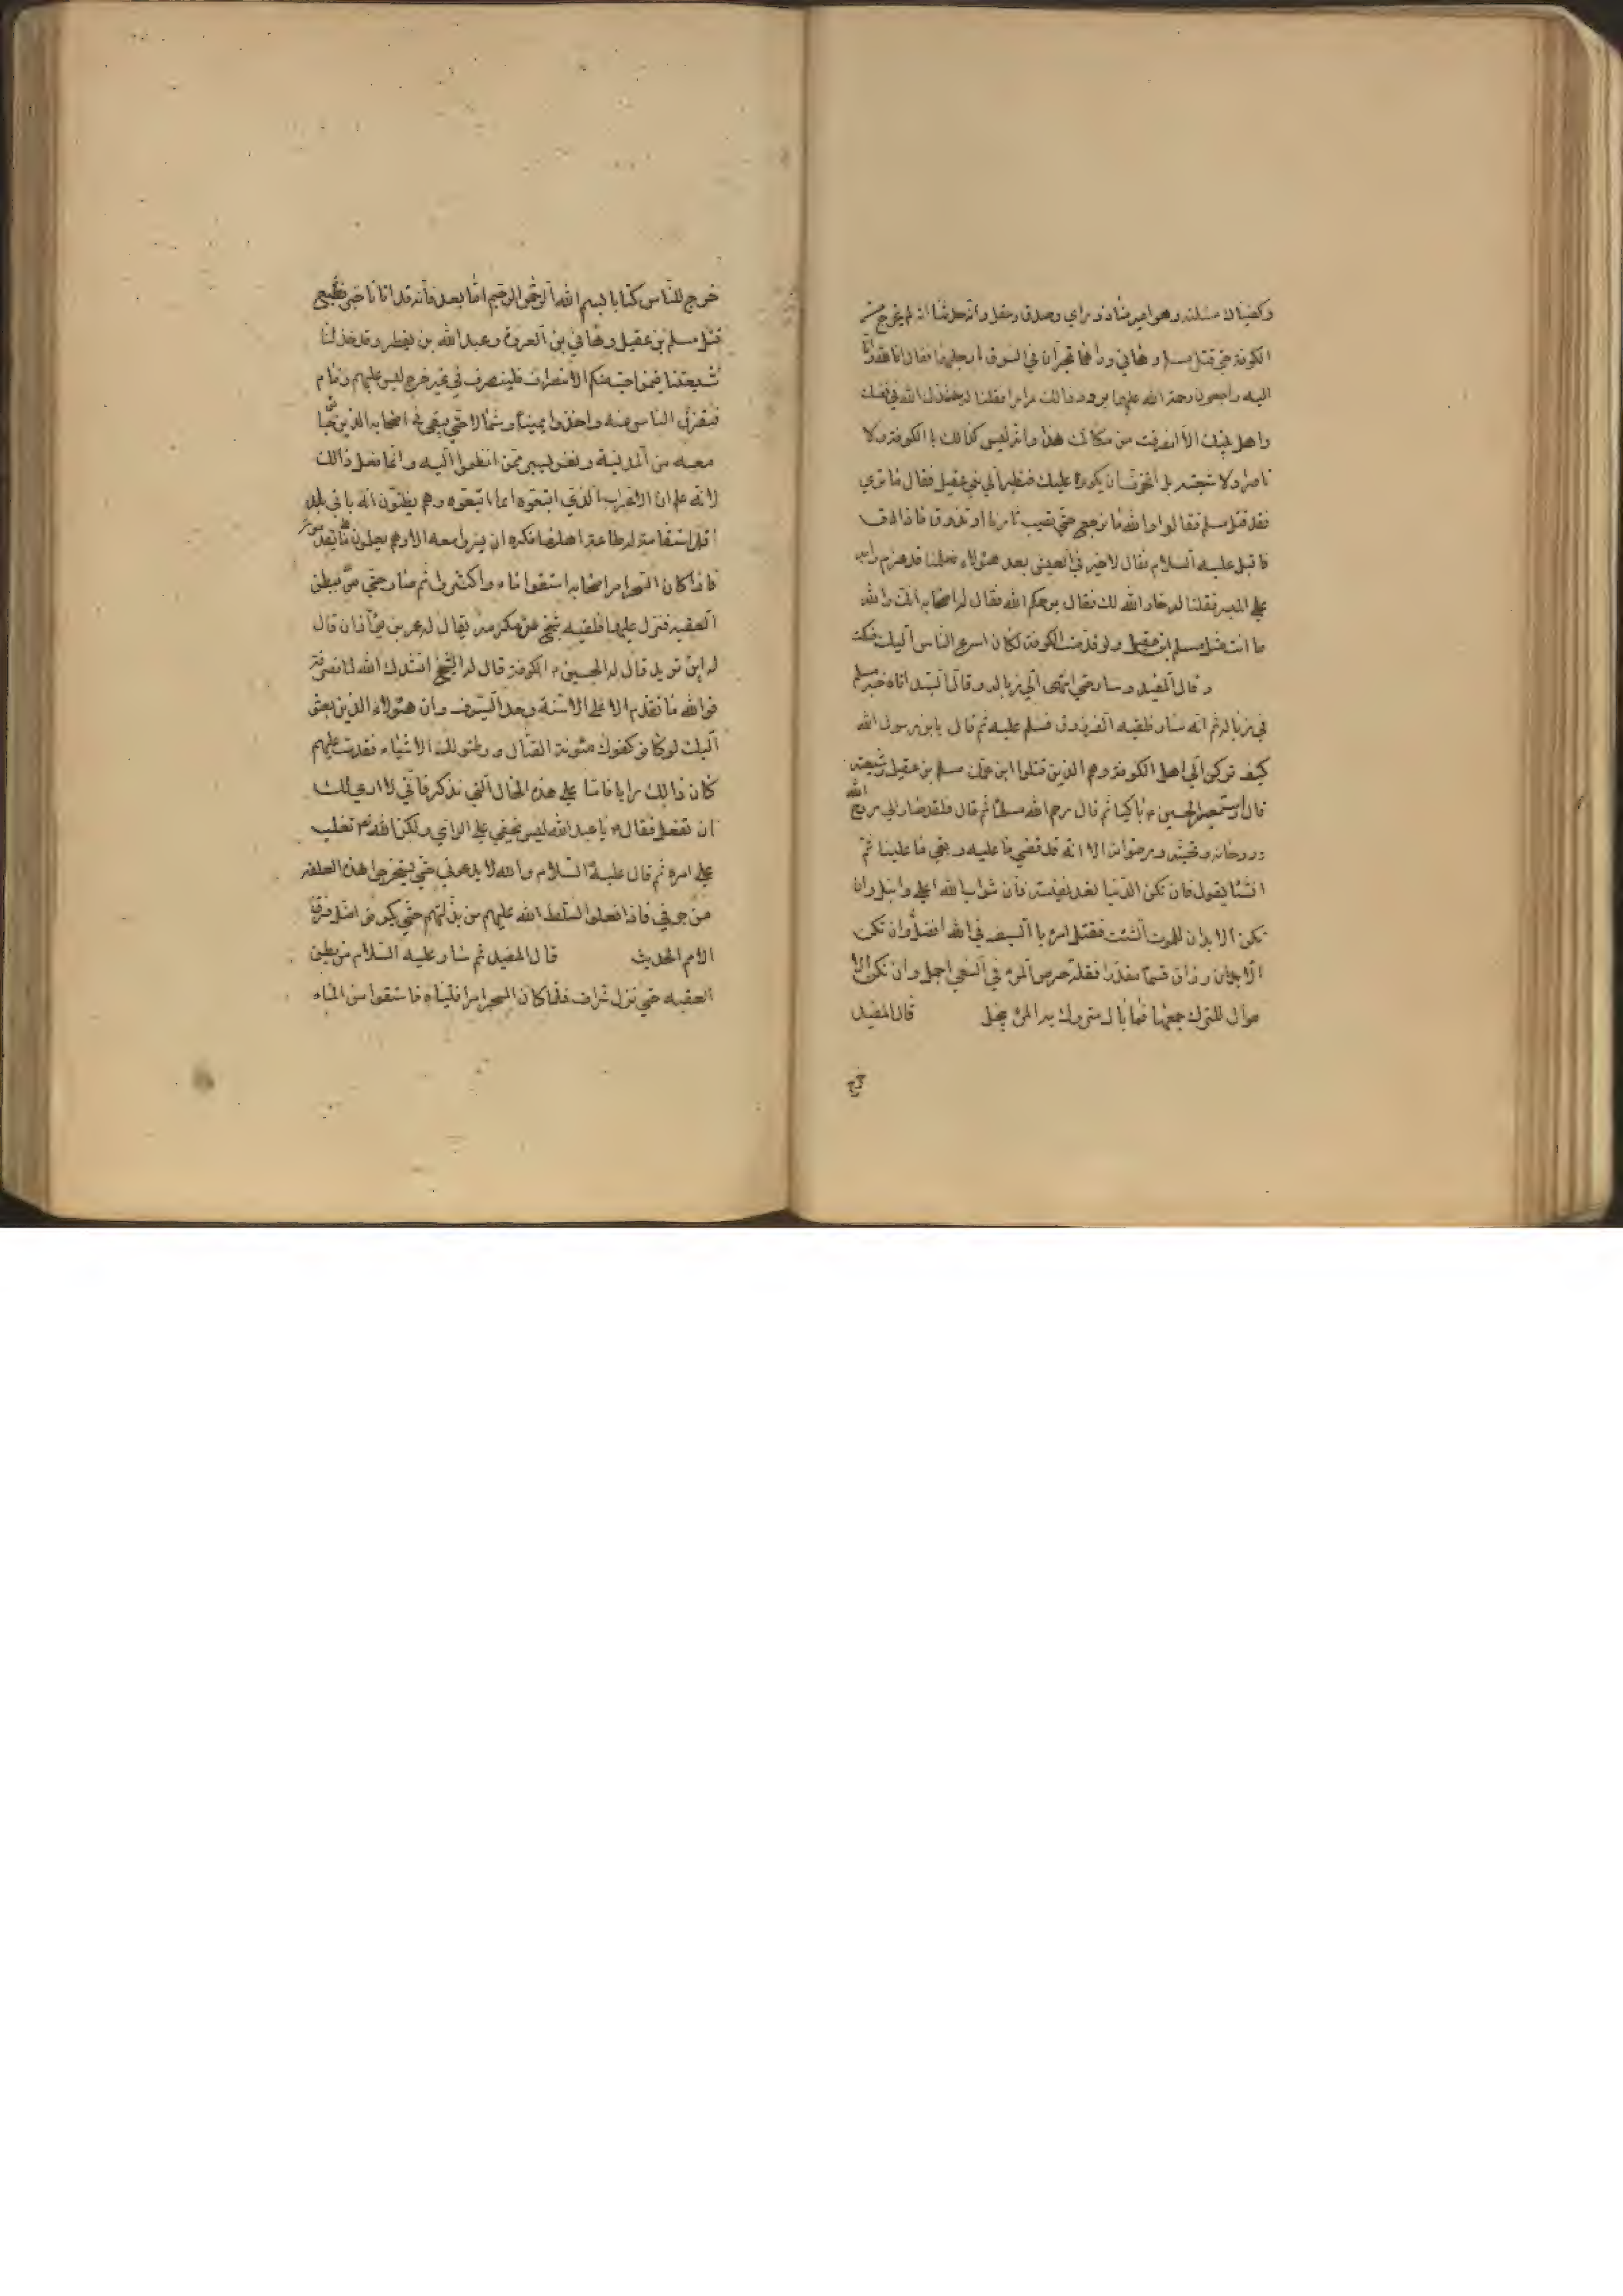 وكفيناك مسئلته وهو امير منا ذو راي وصدق وعقل وانه حدثنا انه لم يخرج من
الكوفة حتى قتل مسلم وهاني وراهما يجران في السوق بارجلهما فقال انا لله وانا
اليه راجعون رحمة الله عليهما يردد ذالك مرارا فقلنا له ننشدك الله في نفسك
واهل بيتك الا انصرفت من مكانك هذا وانه ليس كذالك با الكوفة ولا
ناصر ولا شيعته بل نتخوف ان يكونوا عليك فنظر الي بني عقيل فقال ما تري
فقد قتل مسلم فقالوا والله ما نرجع حتى نصيب ثارنا او نذوق ما ذاق
فاقبل عليه السلام فقال لاخير في العيش بعد هؤلاء فعلمنا قد عزم رايه
على المسير فقلنا له خار الله لك فقال يرحمكم الله فقال له اصحابه انك والله
ما انت مثل مسلم ابن عقيل ولو قدمت الكوفة لكان اسرع الناس اليك فسكت
وقال المفيد وسار حتى انتهى الي زباله وقال السيد اتاه خبر مسلم
في زباله ثم انه سار فلقيه الفرزدق فسلم عليه ثم قال يابن رسول الله
كيف تركن الي اهل الكوفة وهم الذين قتلوا ابن عمك مسلم بن عقيل وشيعته
قال استعبر الحسين ع باكيا ثم قال رحم الله مسلما ثم قال فلقد صار الي روح الله
وروحانه وتحيته ورضوانه الا انه قد قضي ما عليه وبقي ما علينا ثم
انشا يقول فان تكن الدنيا تعد نفيسة فان ثواب الله اعلى وانبل وان
تكن الابدان للموت انشئت فقتل امرء با السيف في الله افضل وان تكن
الارزاق قسما مقدرا فقلة حرص المرء في السعي اجمل وان تكن الا
موال للترك جمعها فما بال متروك به المرء يبخل قال المفيد
خرج للناس كتابا بسم الله الرحمن الرحيم اما بعد فانه قد اتانا خبر فظيع
قتل مسلم بن عقيل وهاني بن العروة وعبد الله بن يقطر وقد خذلنا
شيعتنا فمن احب منكم الانصراف فلينصرف في غير حرج ليس عليهم ذمام
فتفرق الناس عنه واخذوا يمينا وشمالا حتى بقي في اصحابه الذين جاؤا
معه من المدنية ونفر يسير ممن انظموا اليه وانما فعل ذالك
لانه علم ان الاعراب الذي اتبعوه انما اتبعوه وهم يظنون انه ياتي بلد
قد استقامت له طاعة اهلها فكره ان يسيروا معه الا وهم يعلمون على ما يقدمون
فاذا كان السحر امر اصحابه استقوا ماء واكثروا ثم سار حتى مر ببطن
العقبه فنزل عليها فلقيه شيخ من عكرمة يقال له عمر بن لوذان قال
له اين تريد قال له الحسين ع الكوفة قال له الشيخ انشدك الله لما انصرفت
فوالله ما تقدم الا على الاسنة وحد السيوف وان هؤلاء الذين بعثوا
اليك لو كانو كفوك مئونة القتال ووطئو لك الاشياء فقدمت عليهم
كان ذالك رايا فاما على هذه الحال التي تذكر فاني لا اري لك
ان تفعل فقال ع يا عبد الله ليس يخفي علي الراي ولكن الله لا تغلب
على امره ثم قال عليه السلام والله لا يدعوني حتى يستخرجوا هذه العلقة
من جوفي فاذا فعلوا سلط الله عليهم من يذلهم حتى يكونوا اذل فرق
الامم الحديث قال المفيد ثم سار عليه السلام من بطن
العقبه حتى نزل شراف فلما كان السحر امر فتيانه فاستقوا من الماء